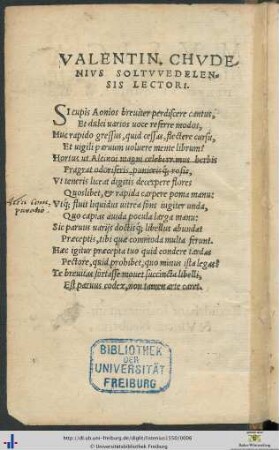 VALENTIN. CHVDE
NIVS SOLTVVEDELEN-
SIS LECTORI.
SI cupis Aonios breuiter perdiscere cantus,
Et dulci varios voce referre modos,
Huc rapido gressus, quid cessas, flectere cursu,
Et vigili paruum voluere mente librum?
Hortus ut Alcinoi magni celeberrimus herbis
Fragrat odoriferis, puniceisq; rosis,
Vt teneris liceat digitis decerpere flores
Quoslibet, & rapida carpere poma manu:
Vtq; fluit liquidus vitrea fons iugiter unda,
Quo capias auida pocula larga manu:
Sic paruus varijs doctisq; libellus abundat
Præceptis, tibi quæ commoda multa ferunt.
Hæc igitur præcepta tuo quid condere tardas
Pectore, quid prohibet, quo minus ista legas?
Te breuitas fortasse mouet succincta libelli,
Est paruus codex, non tamen arte caret.
BIBLIOTHEK
DER
UNIVERSITÄT
FREIBURG
http://dl.ub.uni-freiburg.de/diglit/listenius1550/0006
© Universitätsbibliothek Freiburg